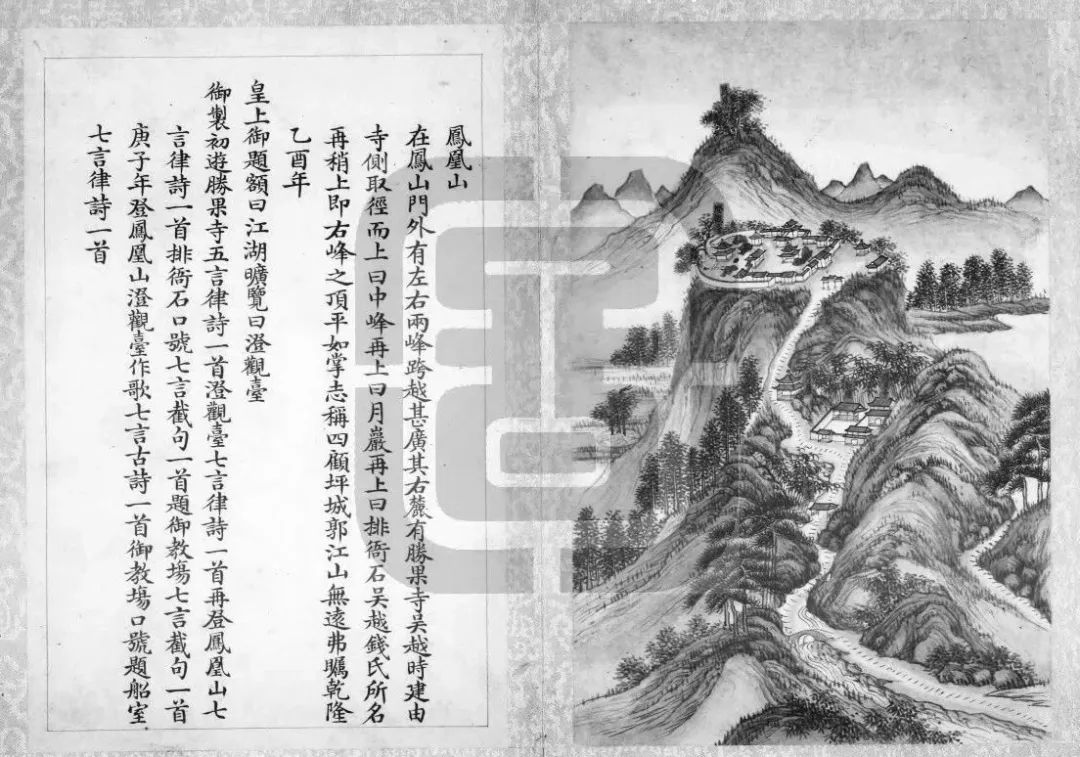 鳳凰山
在鳳山門外有左右兩峰跨越甚廣其右麓有勝果寺吳越時建由
寺側取徑而上曰中峰再上曰月巖再上曰排衙石吳越錢氏所名
再稍上即右峰之頂平如掌志稱四顧坪城郭江山無遠弗矚乾隆
乙酉年
皇上御題額曰江湖曠覽曰澄觀臺
御製初遊勝果寺五言律詩一首澄觀臺七言律詩一首再登鳳凰山七
言律詩一首排衙石口號七言截句一首題御教場七言截句一首
庚子年登鳳凰山澄觀臺作歌七言古詩一首御教場口號題船室
七言律詩一首